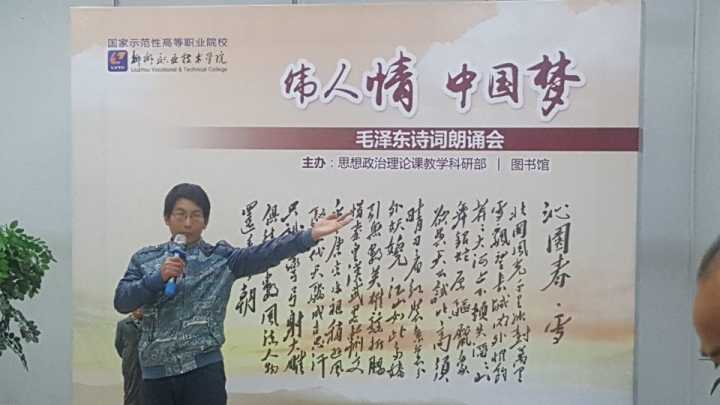 国家示范性高等职业院校
柳州职业技术学院
Liuzhou Vocational & Technical College
伟人情 中国梦
毛泽东诗词朗诵会
主办：思想政治理论课教学科研部 | 图书馆
沁园春·雪
北国风光千里冰封万里
雪飘望长城内外惟余
莽莽大河上下顿失滔滔山
舞银蛇原驰蜡象
欲与天公试比高须
晴日看红装素裹
分外妖娆江山如此多娇
引无数英雄竞折腰
惜秦皇汉武略输文
采唐宗宋祖稍逊风
骚一代天骄成吉思汗
只识弯弓射大雕
俱往矣数风流人物
还看朝